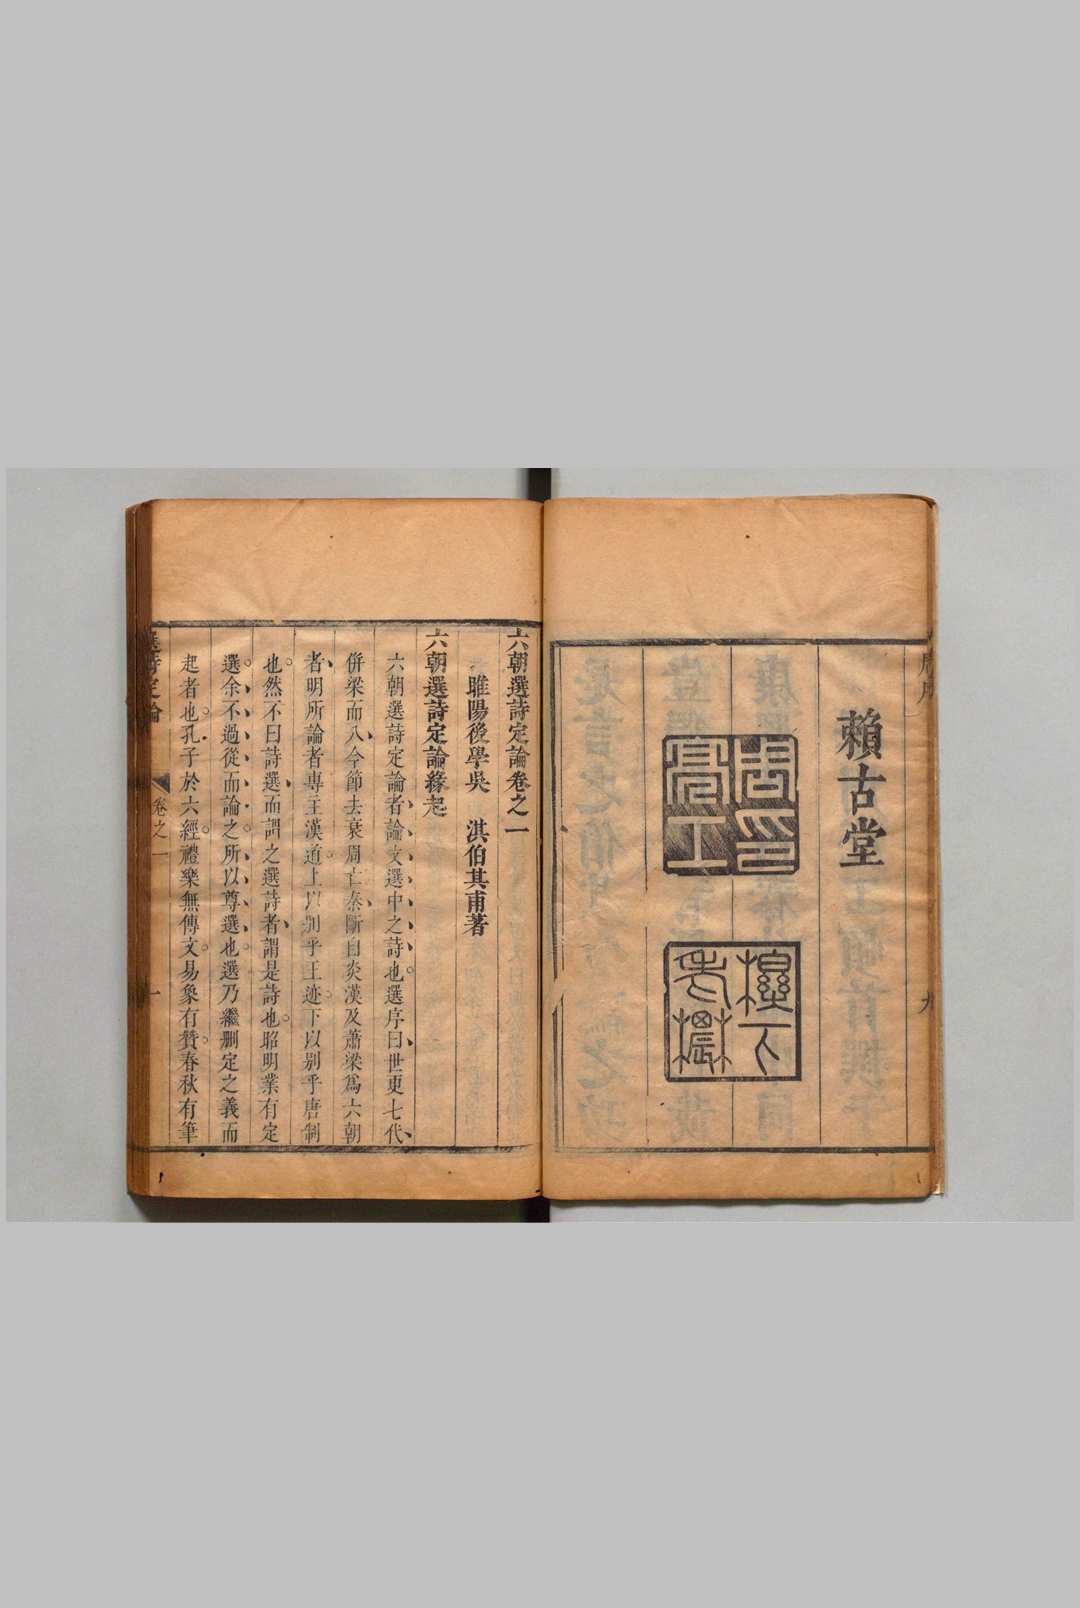 賴古堂
周亮工印
櫟下老
九
六朝選詩定論卷之一
睢陽後學吳　淇伯其甫著
六朝選詩定論緣起
六朝選詩定論者論文選中之詩也。選序曰世更七代、
併梁而八、今節去衰周亡秦、斷自炎漢及蕭梁爲六朝
者、明所論者專主漢道。上以別乎王迹。下以別乎唐制
也。然不曰詩選、而謂之選詩者、謂是詩也。昭明業有定
選。余不過從而論之。所以尊選也。選乃繼刪定之義而
起者也。孔子於六經。禮樂無傳。文易象有贊。春秋有筆
選詩定論
卷之一
一